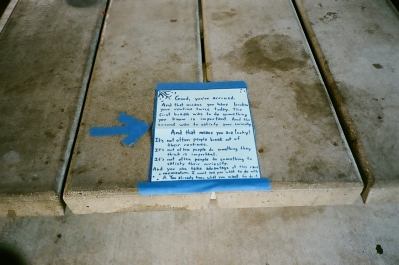 Good, you've arrived.
And that means you have broken
your routine twice today. The
first break was to do something
you knew is important. And the
second was to satisfy your
And that means you are lucky!
It's not often people break out of
their routines.
It's not often people do something they
think is important.
It's not often people do something to
satisfy their curiosity.
And you can take advantage of this rare
I want you to do with
You already know what you want to do